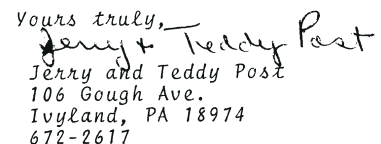 Yours truly,
Jerry + Teddy Post
Jerry and Teddy Post
106 Gough Ave.
Ivyland, PA 18974
672-2617